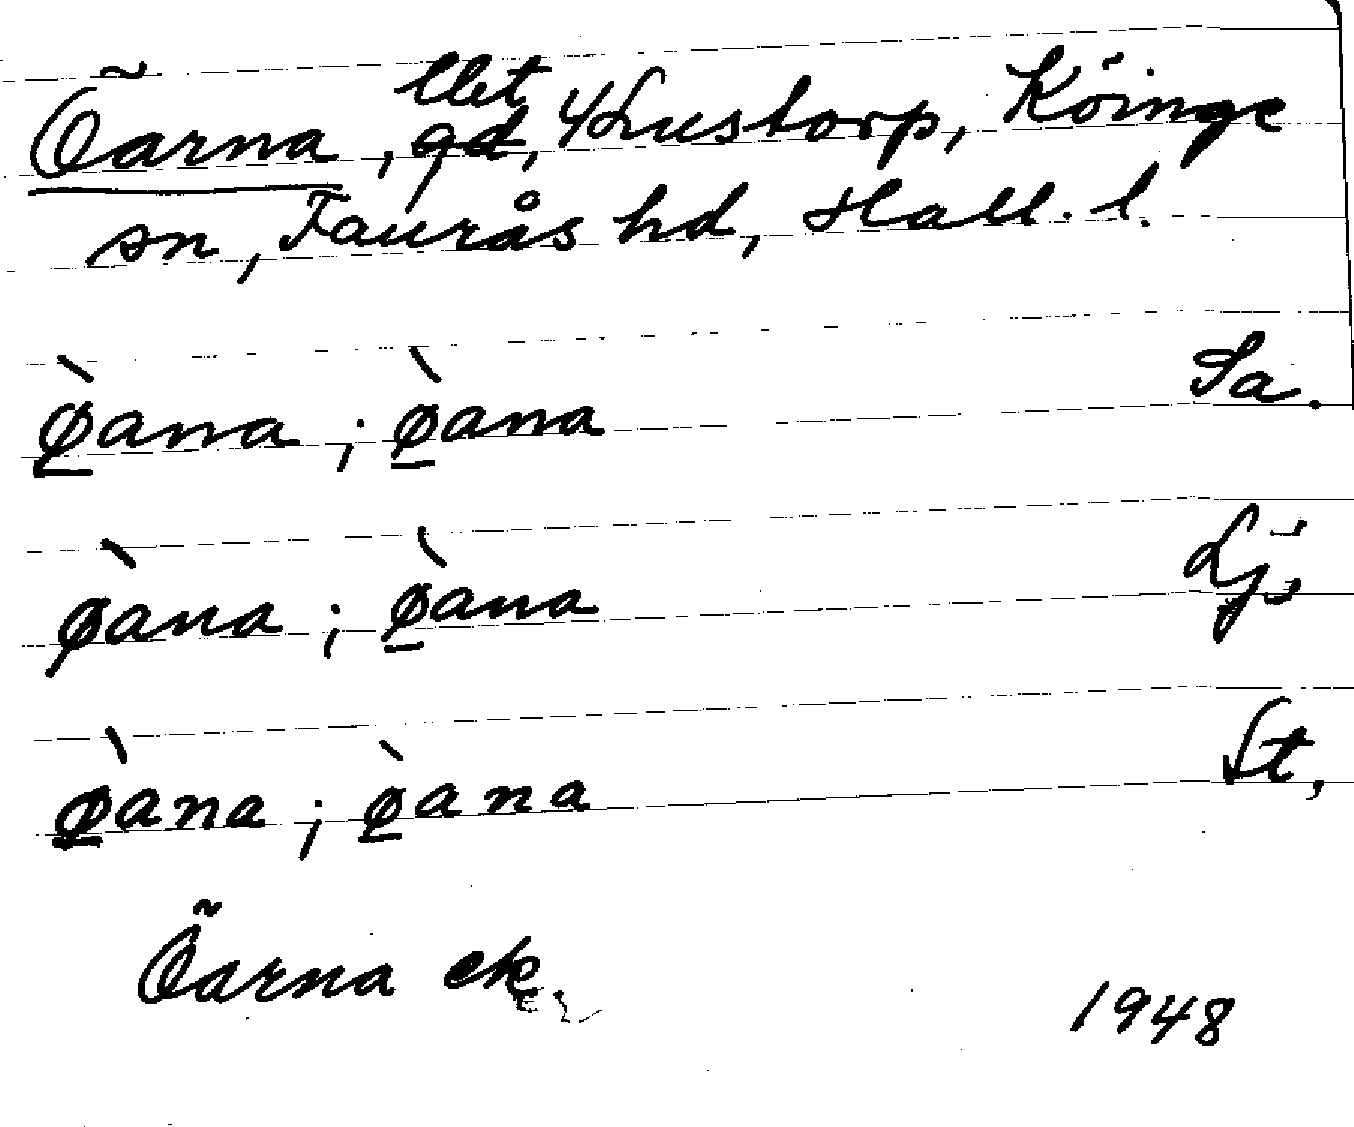 Öarna, llet, gd, 4/Ljustorp, Köinge
sn, Faurås hd, Hall. l.
ø̱̀ana; ø̱̀ana Sa.
ø̀ana; ø̱̀ana Lj,
ø̱̀ana; ø̱̀ana St,
Öarna ek.
1948